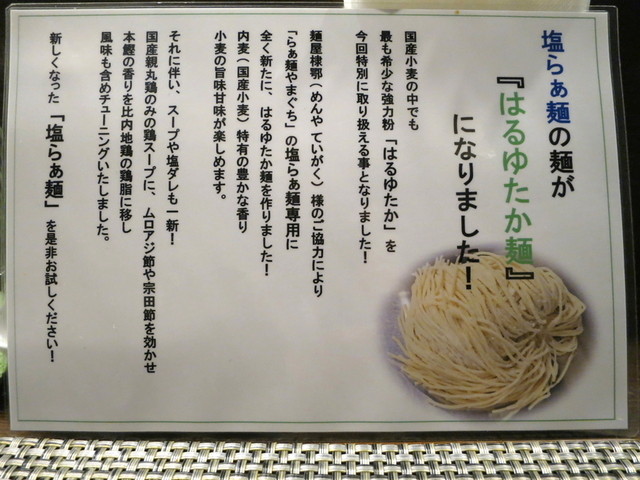 塩らぁ麺の麺が
『はるゆたか麺』
になりました！
国産小麦の中でも
最も希少な強力粉「はるゆたか」を
今回特別に取り扱える事となりました！
麺屋棣鄂（めんや ていがく）様のご協力により
「らぁ麺やまぐち」の塩らぁ麺専用に
全く新たに、はるゆたか麺を作りました！
内麦（国産小麦）特有の豊かな香り
小麦の旨味甘味が楽しめます。
それに伴い、スープや塩ダレも一新！
国産親丸鶏のみの鶏スープに、ムロアジ節や宗田節を効かせ
本鰹の香りを比内地鶏の鶏脂に移し
風味も含めチューニングいたしました。
新しくなった「塩らぁ麺」を是非お試しください！